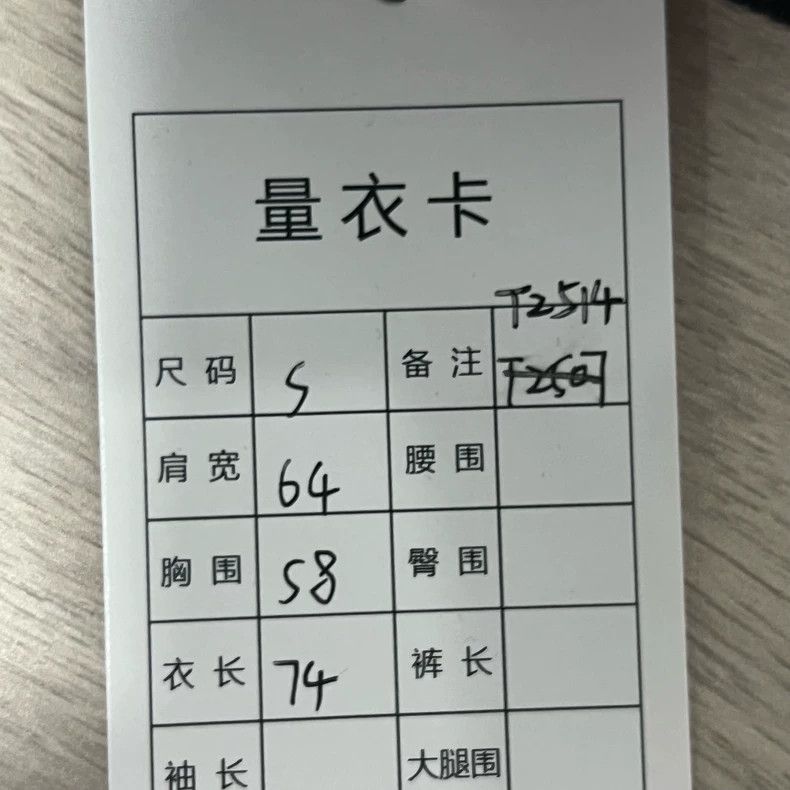 量衣卡
T2514
尺码 S 备注 T2507
肩宽 64 腰围
胸围 58 臀围
衣长 74 裤长
袖长 大腿围